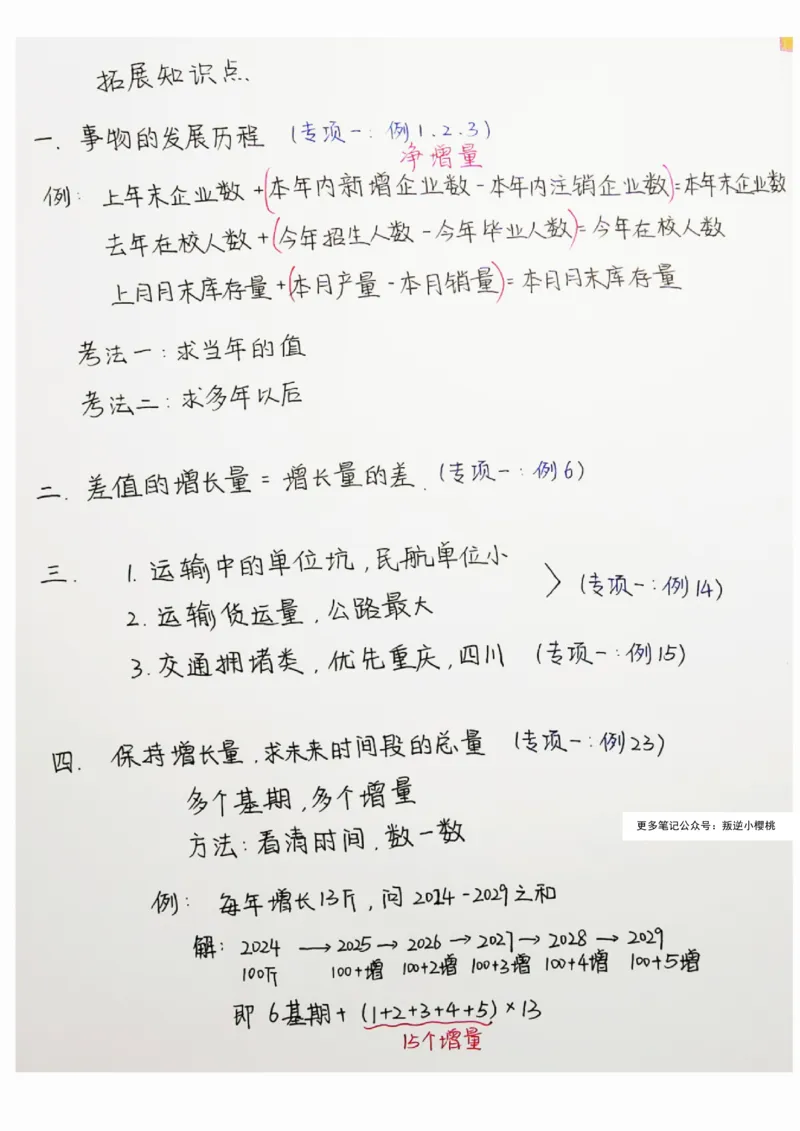 拓展知识点.
一. 事物的发展历程 (专项一: 例1.2.3)
净增量
例: 上年末企业数+(本年内新增企业数-本年内注销企业数)=本年末企业数
去年在校人数+(今年招生人数-今年毕业人数)=今年在校人数
上月月末库存量+(本月产量-本月销量)=本月月末库存量
考法一:求当年的值
考法二:求多年以后
二. 差值的增长量=增长量的差. (专项一:例6)
三. 1. 运输中的单位坑,民航单位小
2. 运输货运量,公路最大
(专项一:例14)
3. 交通拥堵类,优先重庆,四川 (专项一:例15)
四. 保持增长量,求未来时间段的总量 (专项一:例23)
多个基期,多个增量
方法:看清时间,数一数
更多笔记公众号:叛逆小樱桃
例: 每年增长13斤,问2024-2029之和
解: 2024→2025→2026→2027→2028→2029
100斤 100+增 100+2增 100+3增 100+4增 100+5增
即 6基期+(1+2+3+4+5)×13
15个增量